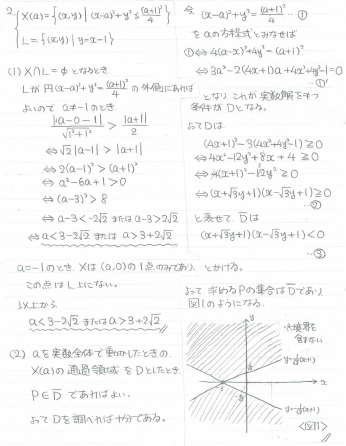 2. { X(a) = {(x,y) | (x-a)²+y² ≤ (a+1)²/4}
L = {(x,y) | y = x-1}
(1) X∩L = φ となるとき
Lが円(x-a)²+y² = (a+1)²/4 の外側にあれば
よいので a≠-1のとき.
|1·a-0-1| / √(1²+1²) > |a+1| / 2
⇔ √2|a-1| > |a+1|
⇔ 2(a-1)² > (a+1)²
⇔ a²-6a+1 > 0
⇔ (a-3)² > 8
⇔ a-3 < -2√2 または a-3 > 2√2
⇔ a < 3-2√2 または a > 3+2√2
a=-1のとき、Xは(a,0)の1点のみであり、
この点はL上にない。
以上から
a < 3-2√2 または a > 3+2√2
(2) aを実数全体で動かしたときの
X(a)の通過領域をDとしたとき
P∈D̅ であればよい。
よってDを調べれば十分である。
今
(x-a)²+y² = (a+1)²/4 …①
をaの方程式とみなせば
①⇔ 4(a-x)²+4y² = (a+1)²
⇔ 3a²-2(4x+1)a+4x²+4y²-1=0
…①'
となり、これが実数解をもつ
条件がDとなる。
よってDは
(4x+1)²-3(4x²+4y²-1) ≥ 0
⇔ 4x²-12y²+8x+4 ≥ 0
⇔ 4(x+1)²-12y² ≥ 0
⇔ (x+√3y+1)(x-√3y+1) ≥ 0
…②
と表せて、D̅は
(x+√3y+1)(x-√3y+1) < 0
…③
とかける。
よって求めるPの集合はD̅であり、
図1のようになる.
y
境界を
含まない
y=1/√3(x+1)
x
y=-1/√3(x+1)
<図1>